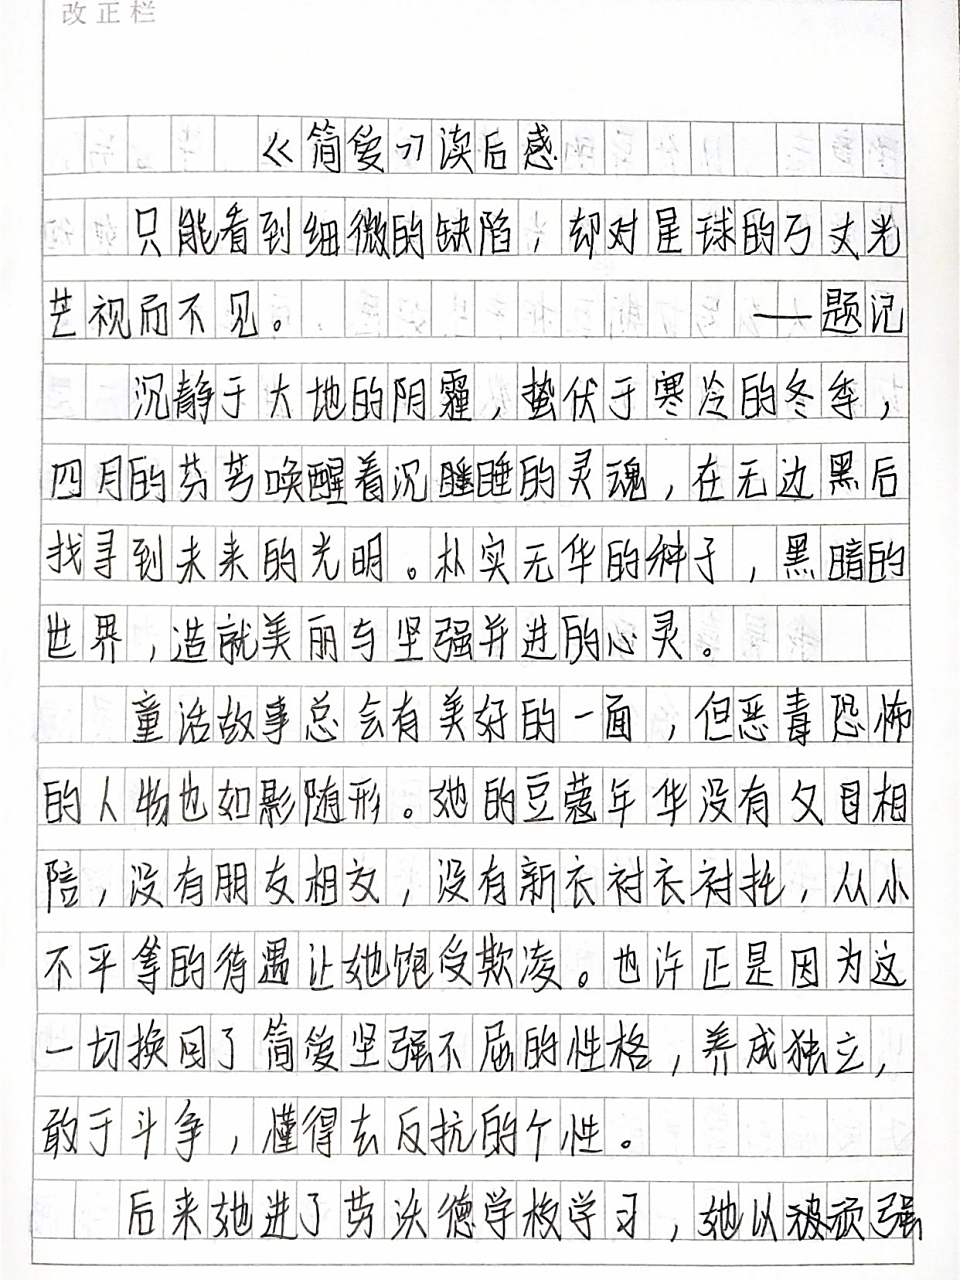 改正栏
《简爱》读后感
只能看到细微的缺陷，却对星球的万丈光
芒视而不见。 ——题记
沉静于大地的阴霾，蛰伏于寒冷的冬季，
四月的芬芳唤醒着沉睡睡的灵魂，在无边黑后
找寻到未来的光明。朴实无华的种子，黑暗的
世界，造就美丽与坚强并进的心灵。
童话故事总会有美好的一面，但恶毒恐怖
的人物也如影随形。她的豆蔻年华没有父母相
陪，没有朋友相交，没有新衣衬衣衬托，从小
不平等的待遇让她饱受欺凌。也许正是因为这
一切换回了简爱坚强不屈的性格，养成独立，
敢于斗争，懂得去反抗的个性。
后来她进了劳沃德学校学习，她以被顽强